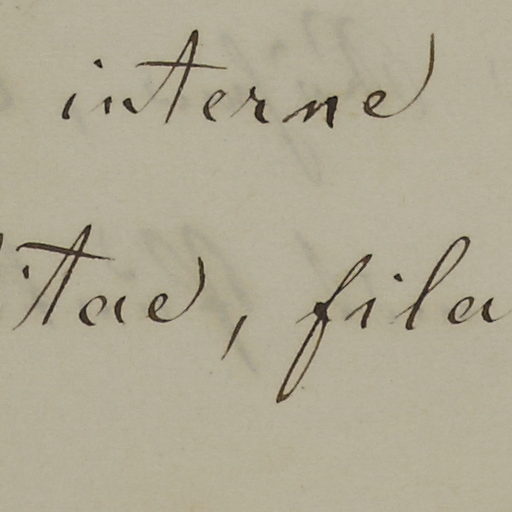 interne
itae, fila